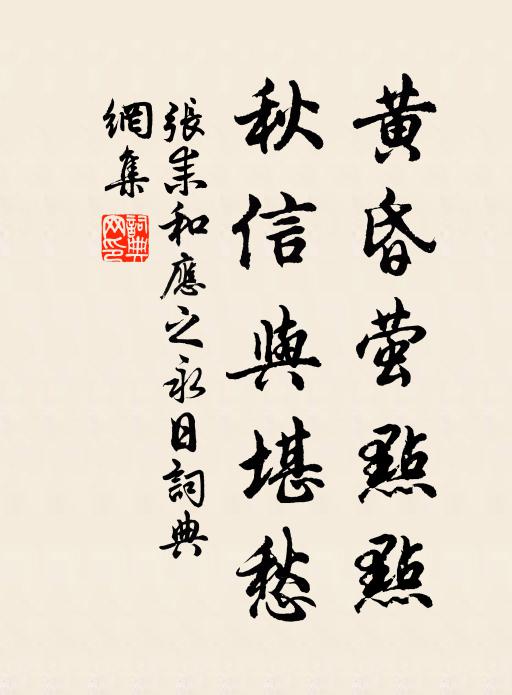 黄昏萤點點
秋信與堪愁
張耒和應之永日詞典
網集
詞典
网印